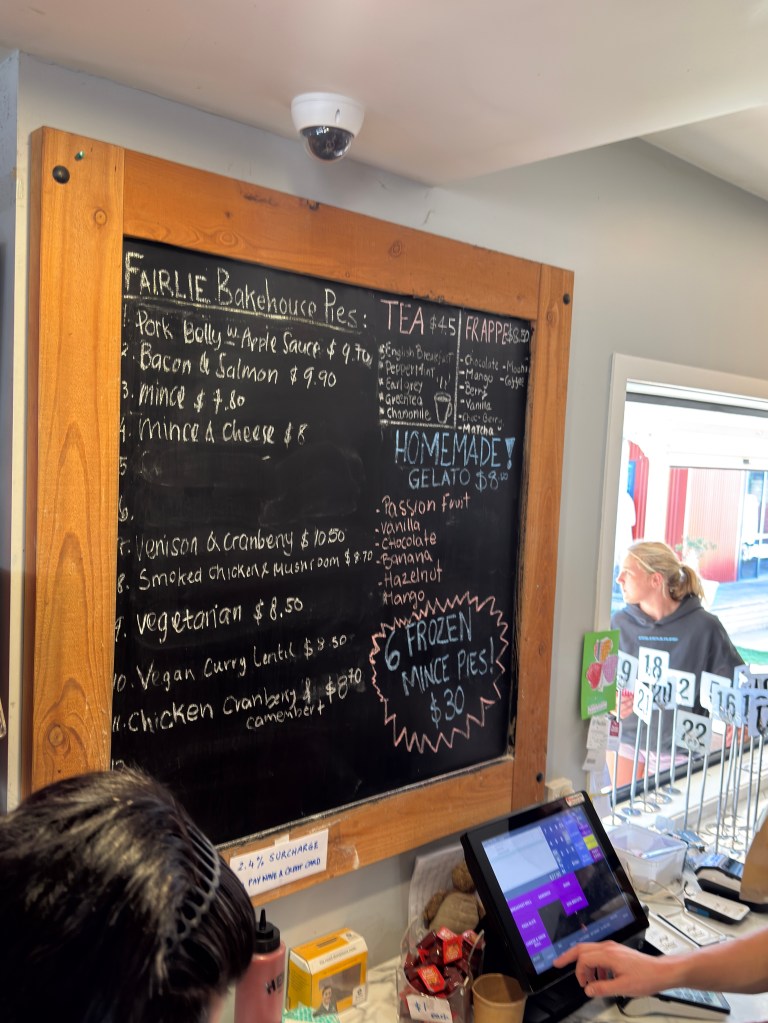 FAIRLIE Bakehouse Pies:
1. Pork Belly w Apple Sauce $9.70
2. Bacon & Salmon $9.90
3. mince $7.80
4. mince & Cheese $8
5
6.
7. Venison & cranberry $10.50
8. Smoked Chicken & Mushroom $8.70
9. vegetarian $8.50
10. Vegan Curry Lentil $8.50
11. Chicken Cranberry & $8.70
camembert
TEA $4.5
English Breakfast
Peppermint
Earl grey
Green tea
Chamomile
FRAPPE $8.50
- Chocolate - Mocha
- Mango - Coffee
- Berry
- Vanilla
- Choc-Berry
- Matcha
HOMEMADE!
GELATO $8.00
- Passion Fruit
- Vanilla
- Chocolate
- Banana
- Hazelnut
- Mango
6 FROZEN
MINCE PIES!
$30
2.4% SURCHARGE
PAY WAVE & CREDIT CARD
9
18
20
2
21
22
16